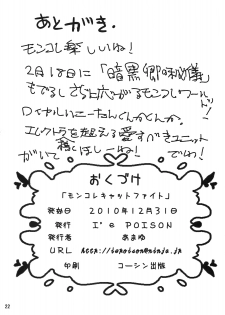 あとがき.
モンコレ楽しいね!
2月18日に「暗黒卿の秘儀」
もでるしさらに広がるモンコレワールド!
ロイヤルハニーちゃんくんかくんか。
エレクトラを超える愛すべきユニット
がいて稼ほしーね! でわ!
おくづけ
「モンコレキャットファイト」
発効日 2010年12月31日
発行 I'm POISON
発行者 あまゆ
URL
印刷 コーシン出版
22